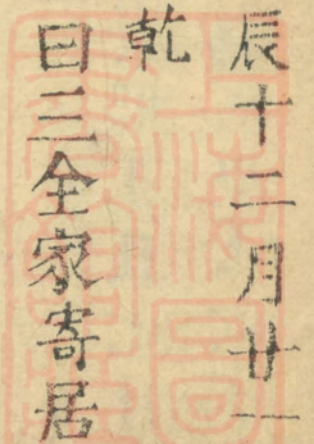 辰十二月廿一
乾
曰三全家寄居